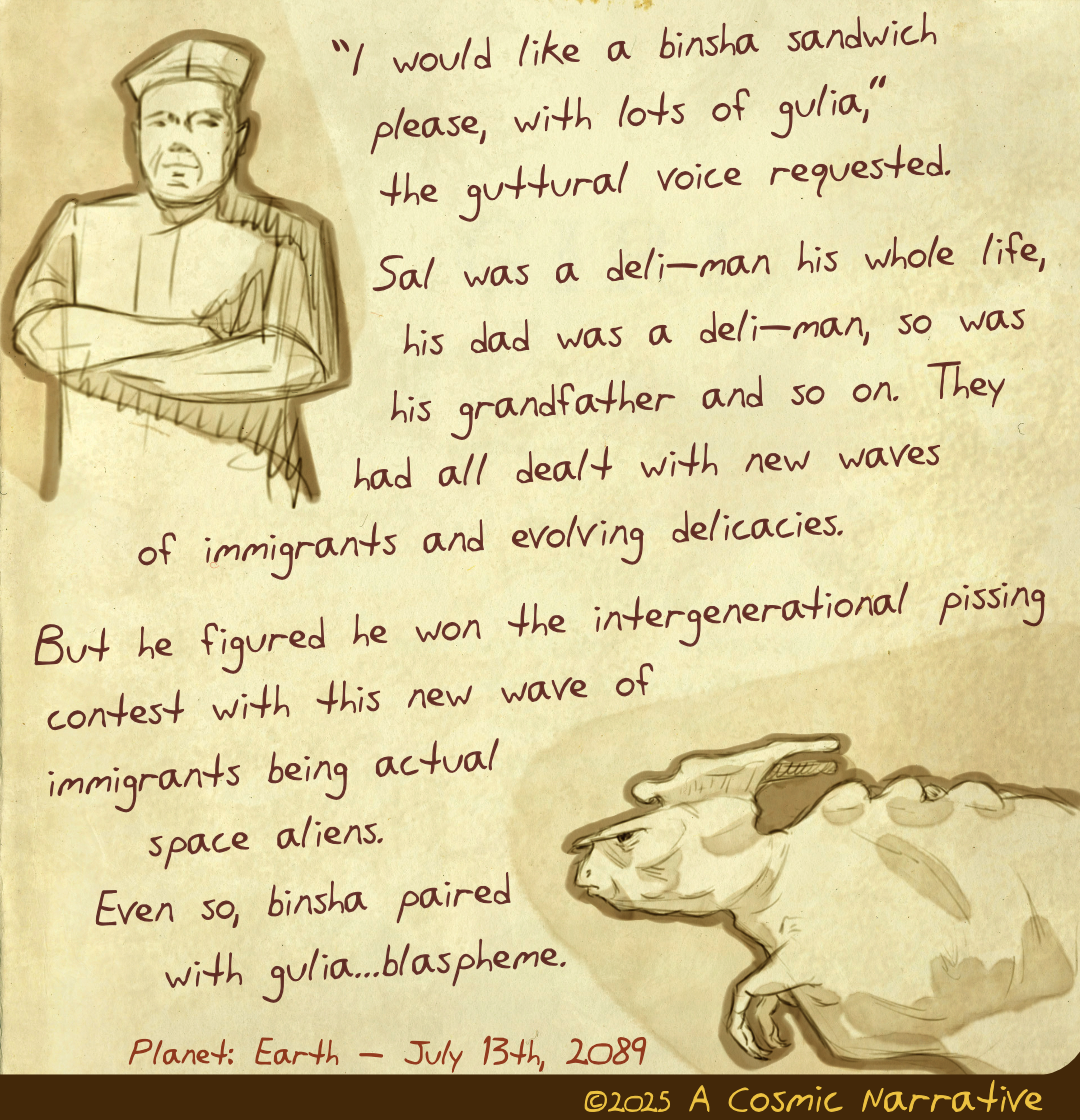 "I would like a binsha sandwich
please, with lots of gulia,"
the guttural voice requested.
Sal was a deli-man his whole life,
his dad was a deli-man, so was
his grandfather and so on. They
had all dealt with new waves
of immigrants and evolving delicacies.
But he figured he won the intergenerational pissing
contest with this new wave of
immigrants being actual
space aliens.
Even so, binsha paired
with gulia...blaspheme.
Planet: Earth - July 13th, 2089
©2025 A Cosmic Narrative